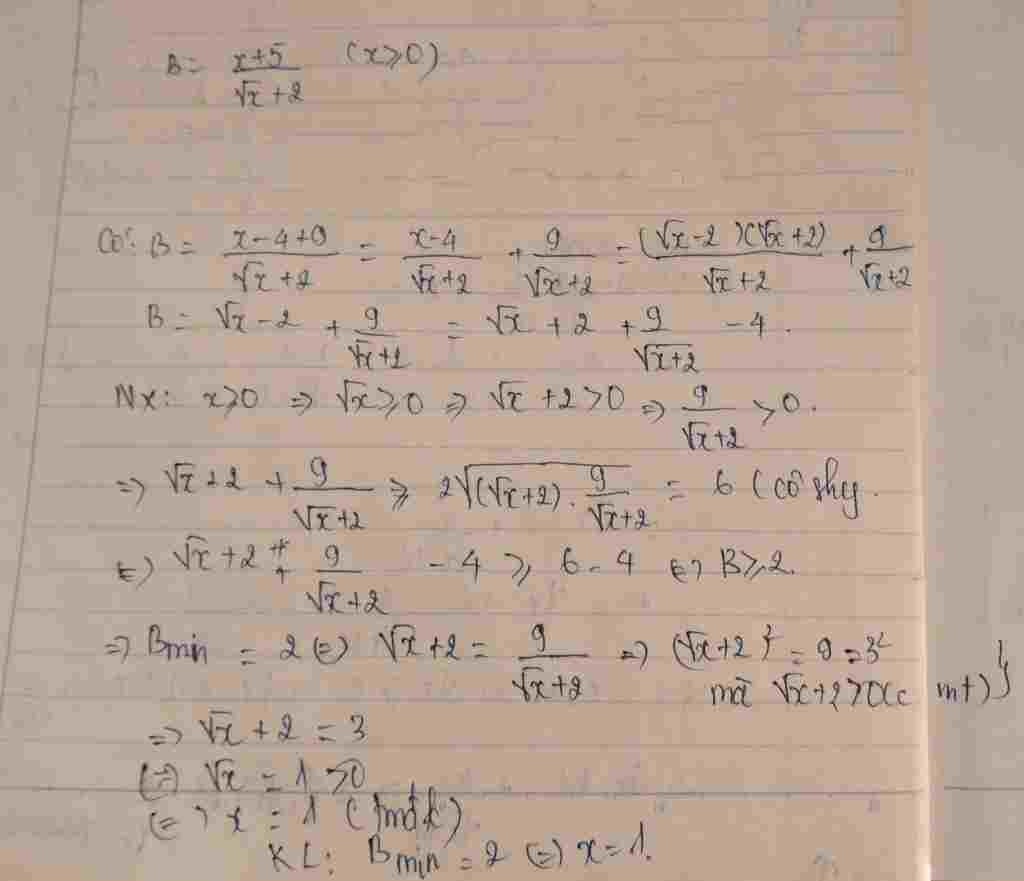 B = \frac{x+5}{\sqrt{x}+2} (x ≥ 0)
Có: B = \frac{x-4+9}{\sqrt{x}+2} = \frac{x-4}{\sqrt{x}+2} + \frac{9}{\sqrt{x}+2} = \frac{(\sqrt{x}-2)(\sqrt{x}+2)}{\sqrt{x}+2} + \frac{9}{\sqrt{x}+2}
B = \sqrt{x} - 2 + \frac{9}{\sqrt{x}+2} = \sqrt{x} + 2 + \frac{9}{\sqrt{x}+2} - 4.
Nx: x ≥ 0 => \sqrt{x} ≥ 0 => \sqrt{x} + 2 > 0 => \frac{9}{\sqrt{x}+2} > 0.
=> \sqrt{x} + 2 + \frac{9}{\sqrt{x}+2} ≥ 2\sqrt{(\sqrt{x}+2) . \frac{9}{\sqrt{x}+2}} = 6 (cô shy
(=) \sqrt{x} + 2 + \frac{9}{\sqrt{x}+2} - 4 ≥ 6 - 4 (=) B ≥ 2.
=> Bmin = 2 (=) \sqrt{x} + 2 = \frac{9}{\sqrt{x}+2} => (\sqrt{x}+2)² = 9 = 3²
mà \sqrt{x}+2 > 0 (cmt) }
=> \sqrt{x} + 2 = 3
(=) \sqrt{x} = 1 > 0
(=) x = 1 (tmđk)
KL: Bmin = 2 (=) x = 1.